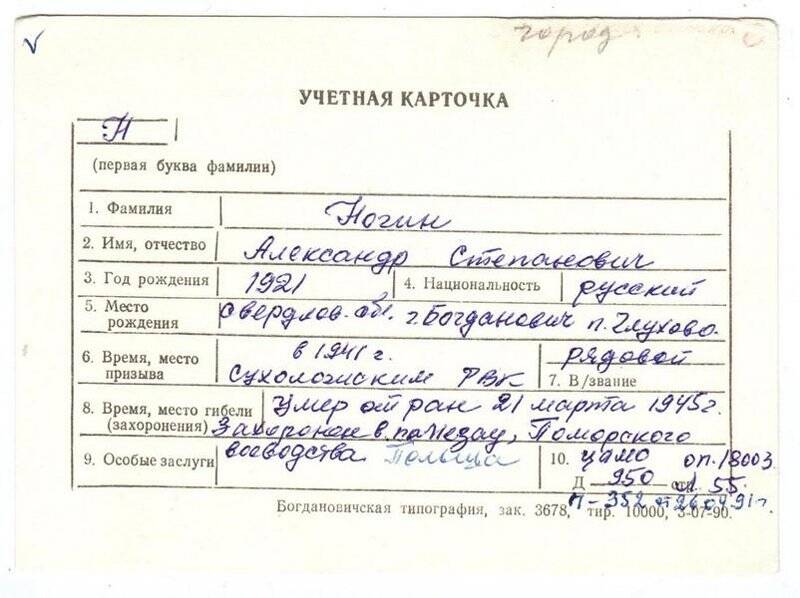 V
город
УЧЕТНАЯ КАРТОЧКА
Н
(первая буква фамилии)
1. Фамилия Ногин
2. Имя, отчество Александр Степанович
3. Год рождения 1921 4. Национальность русский
5. Место рождения Свердлов. обл. г. Богданович п. Глухово
6. Время, место призыва в 1941 г. Сухоложским РВК
рядовой
7. В/звание
8. Время, место гибели (захоронения) Умер от ран 21 марта 1945 г.
Захоронен в Поморского
воеводства Польша
9. Особые заслуги
10. ЦАМО оп. 18003
Д 950 л. 55.
П-352 от 26.04.91 г.
Богдановичская типография, зак. 3678, тир. 10000, 3-07-90.